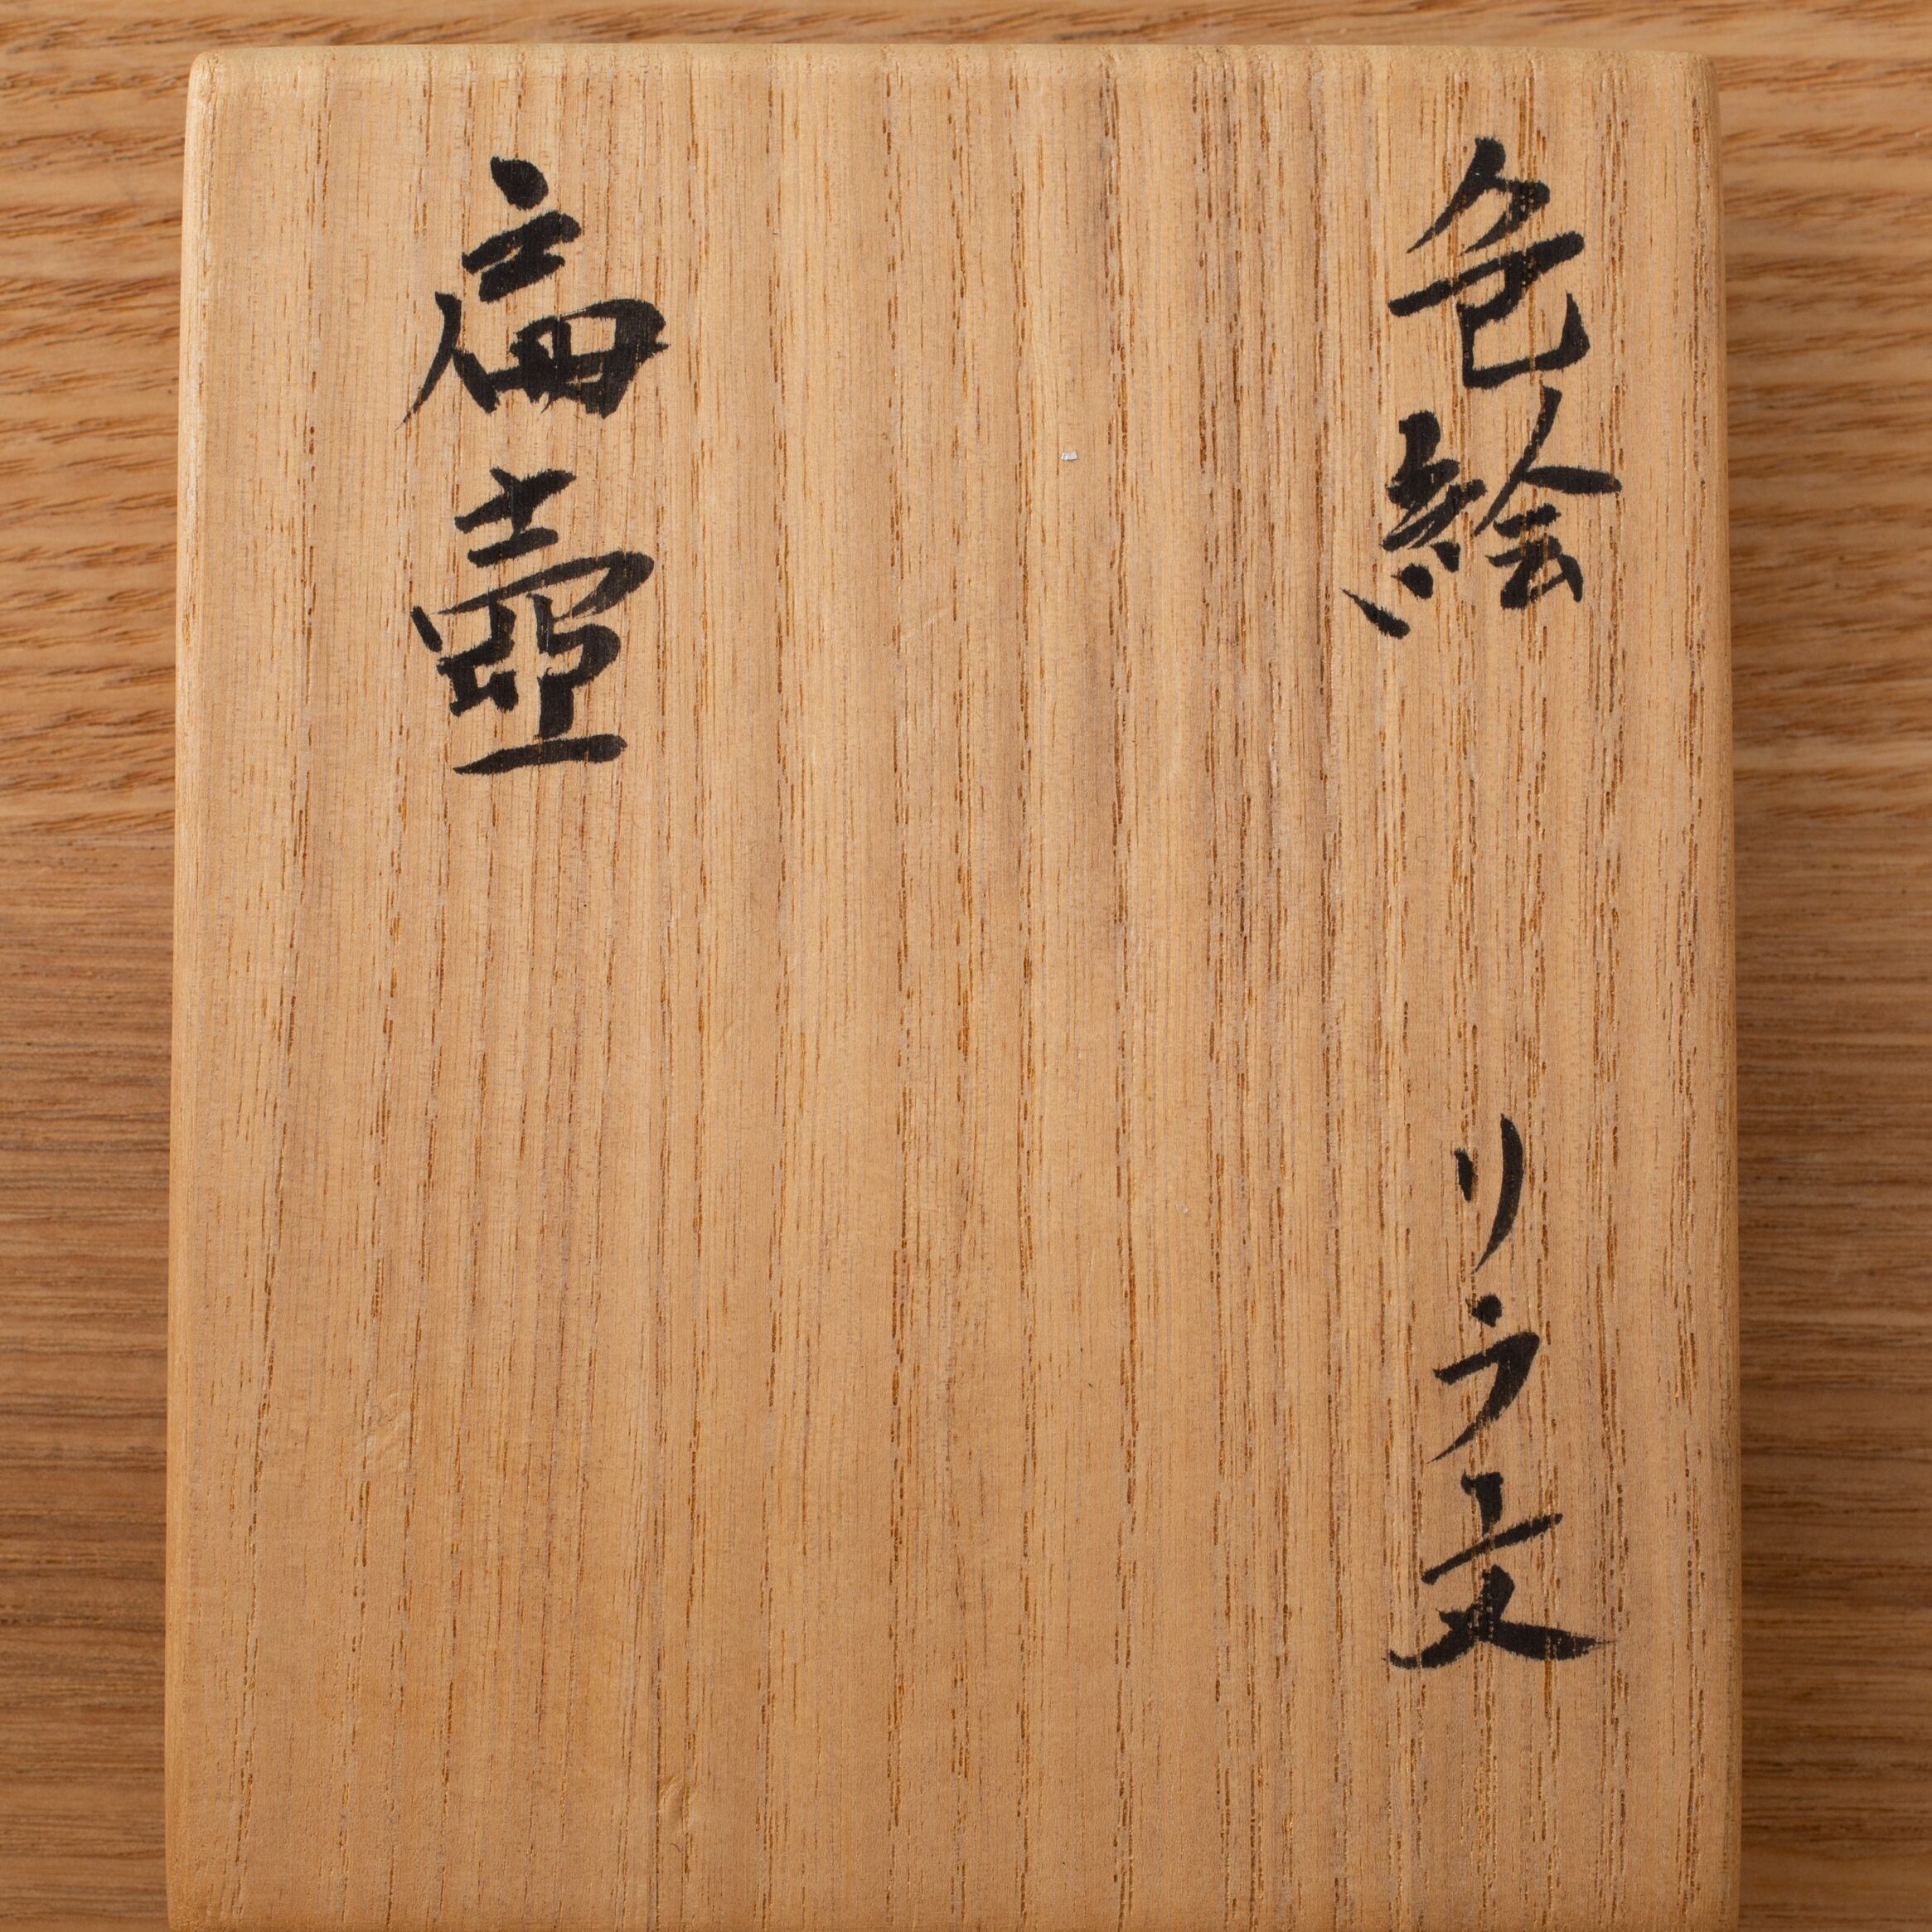 色絵 リラ文
扁壺